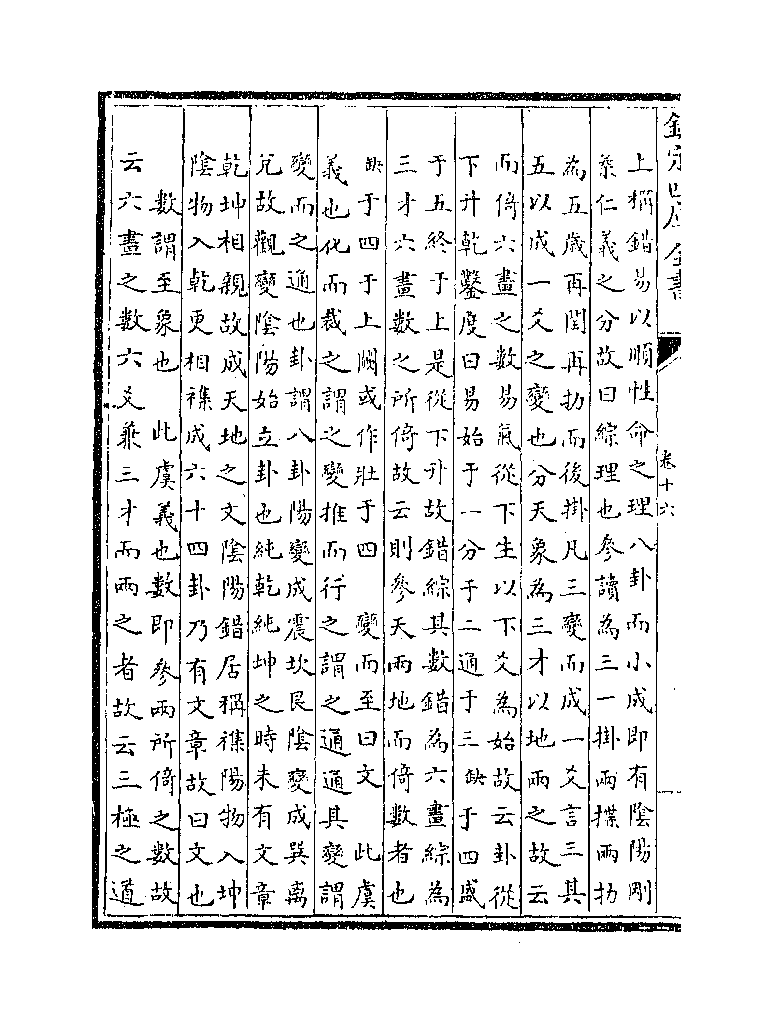 欽定四庫全書
卷十六
上稱錯易以順性命之理八卦而小成即有陰陽剛
柔仁義之分故曰綜理也參讀為三一掛兩揲兩扐
為五歲再閏再扐而後掛凡三變而成一爻言三其
五以成一爻之變也分天象為三才以地兩之故云
而倚六畫之數易氣從下生以下爻為始故云卦從
下升乾鑿度曰易始于一分于二通于三缺于四盛
于五終于上是從下升故錯綜其數錯為六畫綜為
三才六畫數之所倚故云則參天兩地而倚數者也
缺于四于上闕或作壯于四 變而至曰文 此虞
義也化而裁之謂之變推而行之謂之通通其變謂
變而之通也卦謂八卦陽變成震坎艮陰變成巽离
兌故觀變陰陽始立卦也純乾純坤之時未有文章
乾坤相親故成天地之文陰陽錯居稱襍陽物入坤
陰物入乾更相襍成六十四卦乃有文章故曰文也
數謂至象也 此虞義也數即參兩所倚之數故
云六畫之數六爻兼三才而兩之者故云三極之道